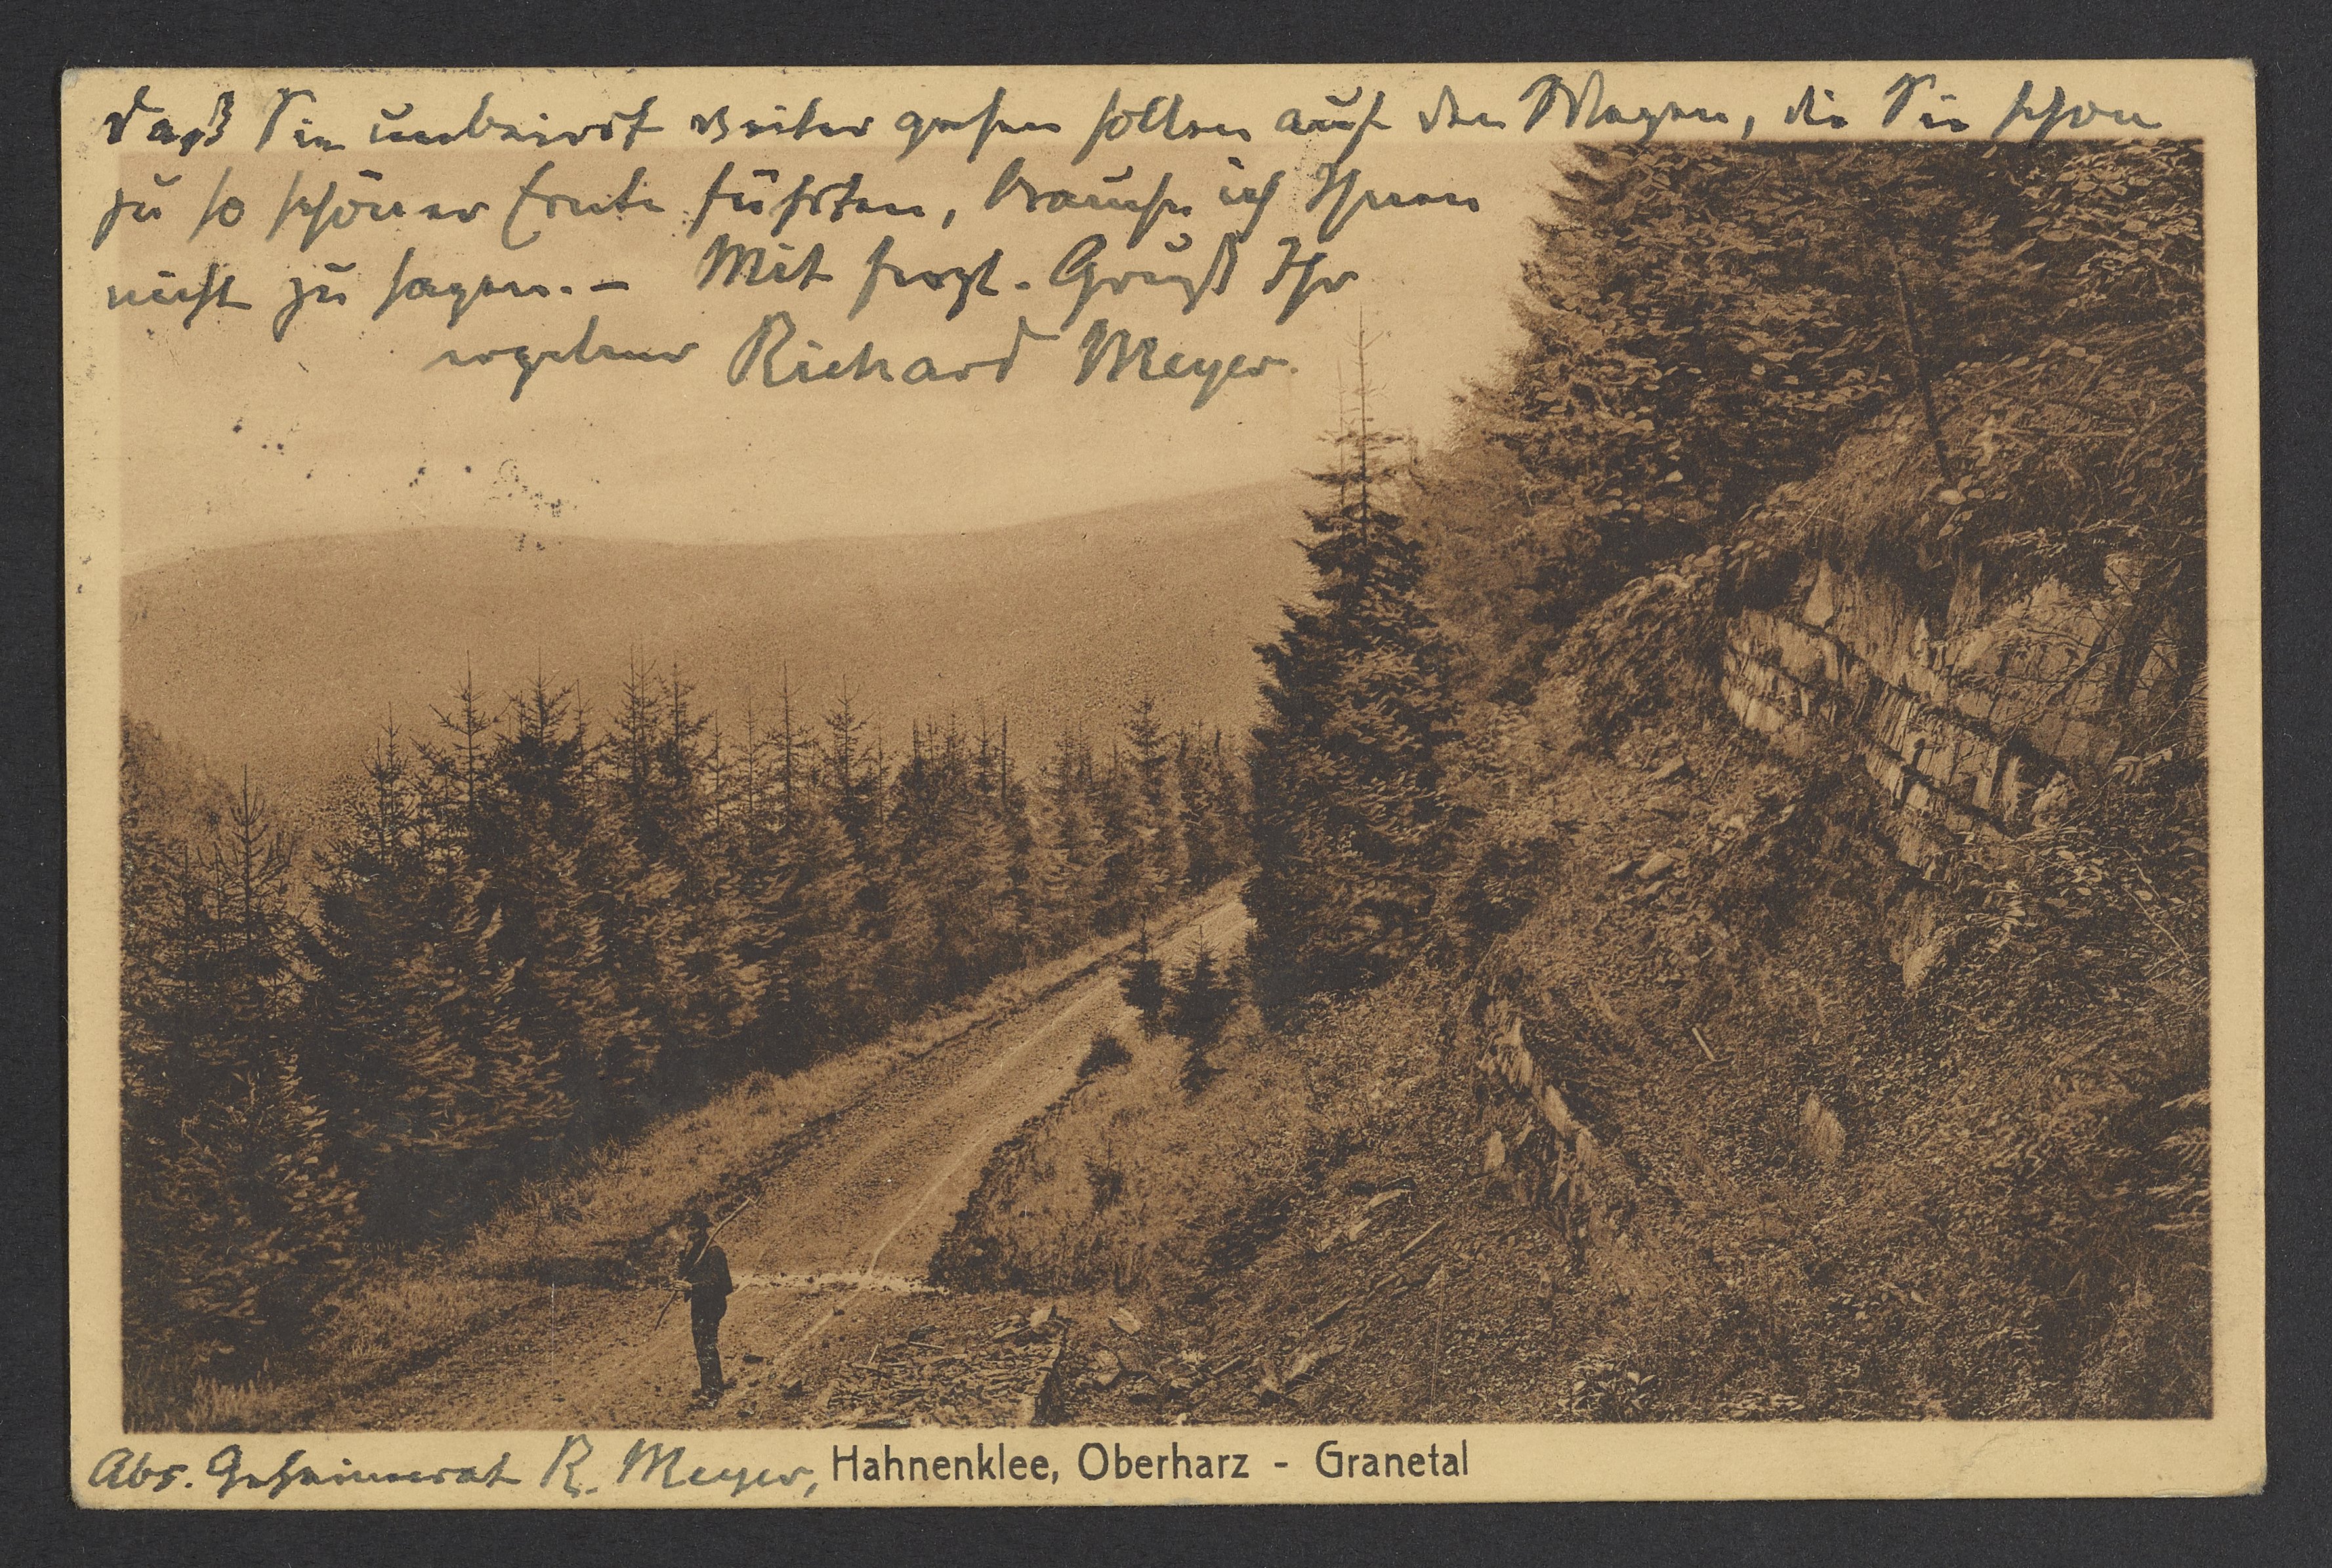 daß Sie unbeirrt weiter gehen sollen auf den Wegen, die Sie schon
zu so schöner Ernte führten, brauche ich Ihnen
nicht zu sagen. – Mit herzl. Gruß Ihr
ergebener Richard Meyer.
Abs. Geheimrat R. Meyer, Hahnenklee, Oberharz - Granetal